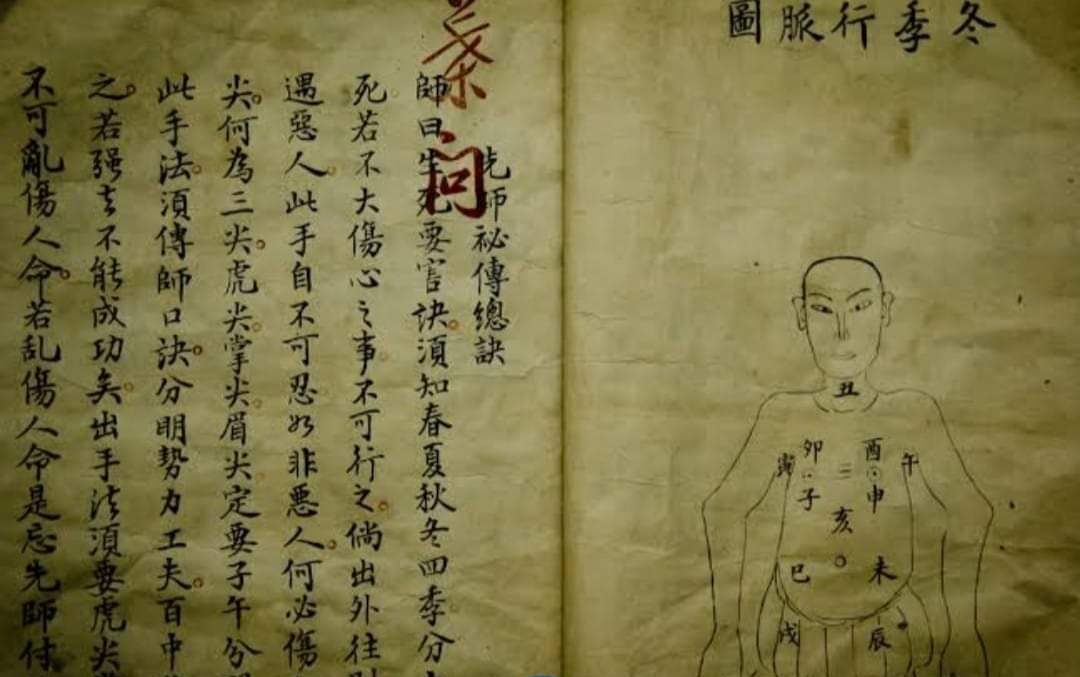 冬季行脈圖
丑
卯 酉
寅 午
子 申
亥
巳 未
戌 辰
葉问
先師祕傳總訣
師曰生死要言訣。須知春夏秋冬四季分
死若不大傷心之事。不可行之。倘出外往
遇惡人。此手自不可忍如非惡人。何必傷
尖。何為三尖。虎尖。掌尖。眉尖定要子午分
此手法。須傳師口訣。分明勢力工夫。百中
之。若强去不能成功矣。出手法須要虎尖
不可亂傷人命。若乱傷人命是忘先師付